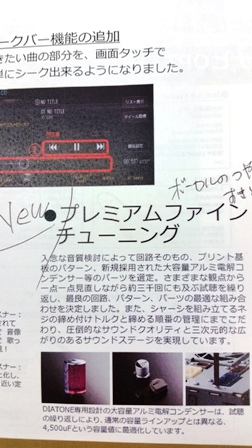 ークバー機能の追加
きたい曲の部分を、画面タッチで
単にシーク出来るようになりました。
NO TITLE
NO TITLE
リスト表示
New!
●プレミアムファイン
チューニング
入念な音質検討によって回路そのもの、プリント基
板のパターン、新規採用された大容量アルミ電解コ
ンデンサー等のパーツを選定。さまざまな観点から
一点一点見直しながら約三千回にも及ぶ試聴を繰り
返し、最良の回路、パターン、パーツの最適な組み合
わせを決定しました。また、シャーシを組み立てるネ
ジの締め付けトルクと締める順番の管理にまでこだ
わり、圧倒的なサウンドクオリティと三次元的な広
がりのあるサウンドステージを実現しています。
DIATONE専用設計の大容量アルミ電解コンデンサーは、試聴
の繰り返しにより、通常の容量ラインアップとは異なる、
4,500uFという容量値に最適化しています。